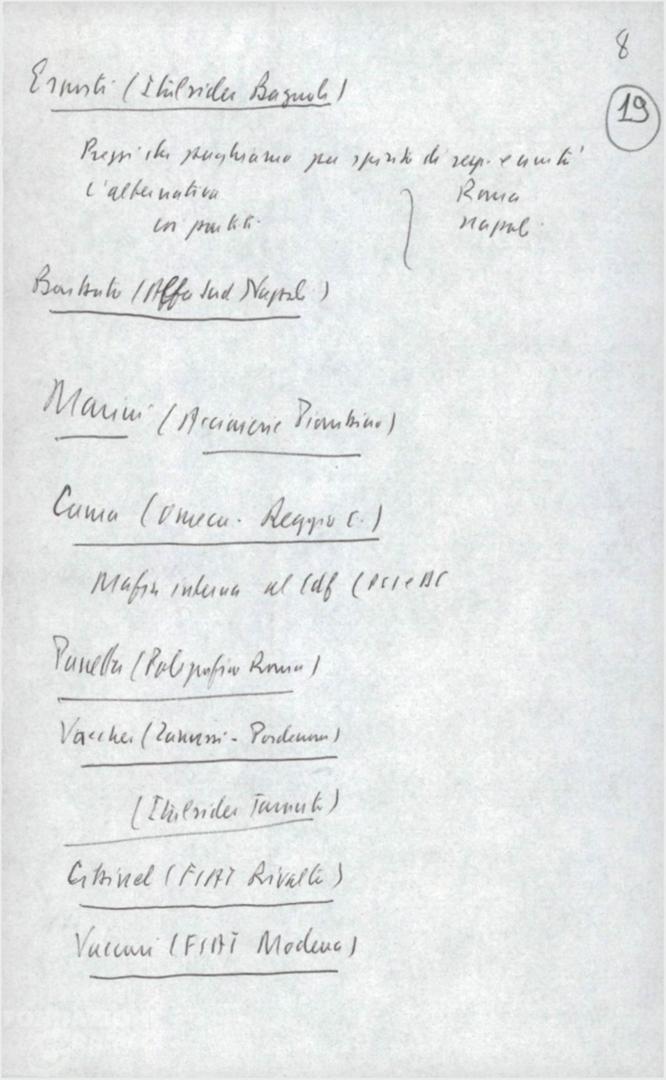 8
19
(Italsider Bagnoli)
Prezzi che paghiamo per spirito di resp. e unità
L'alternativa
Roma
coi partiti
Napoli
(Alfa Sud Napoli)
Marini (Acciaierie Piombino)
Cama (Omeca - Reggio C.)
Mafia interna al Cdf (PCI e
Panella (Poligrafico Roma)
(Zanussi - Pordenone)
(Italsider Taranto)
(FIAT Rivalta)
Vaccari (FIAT Modena)